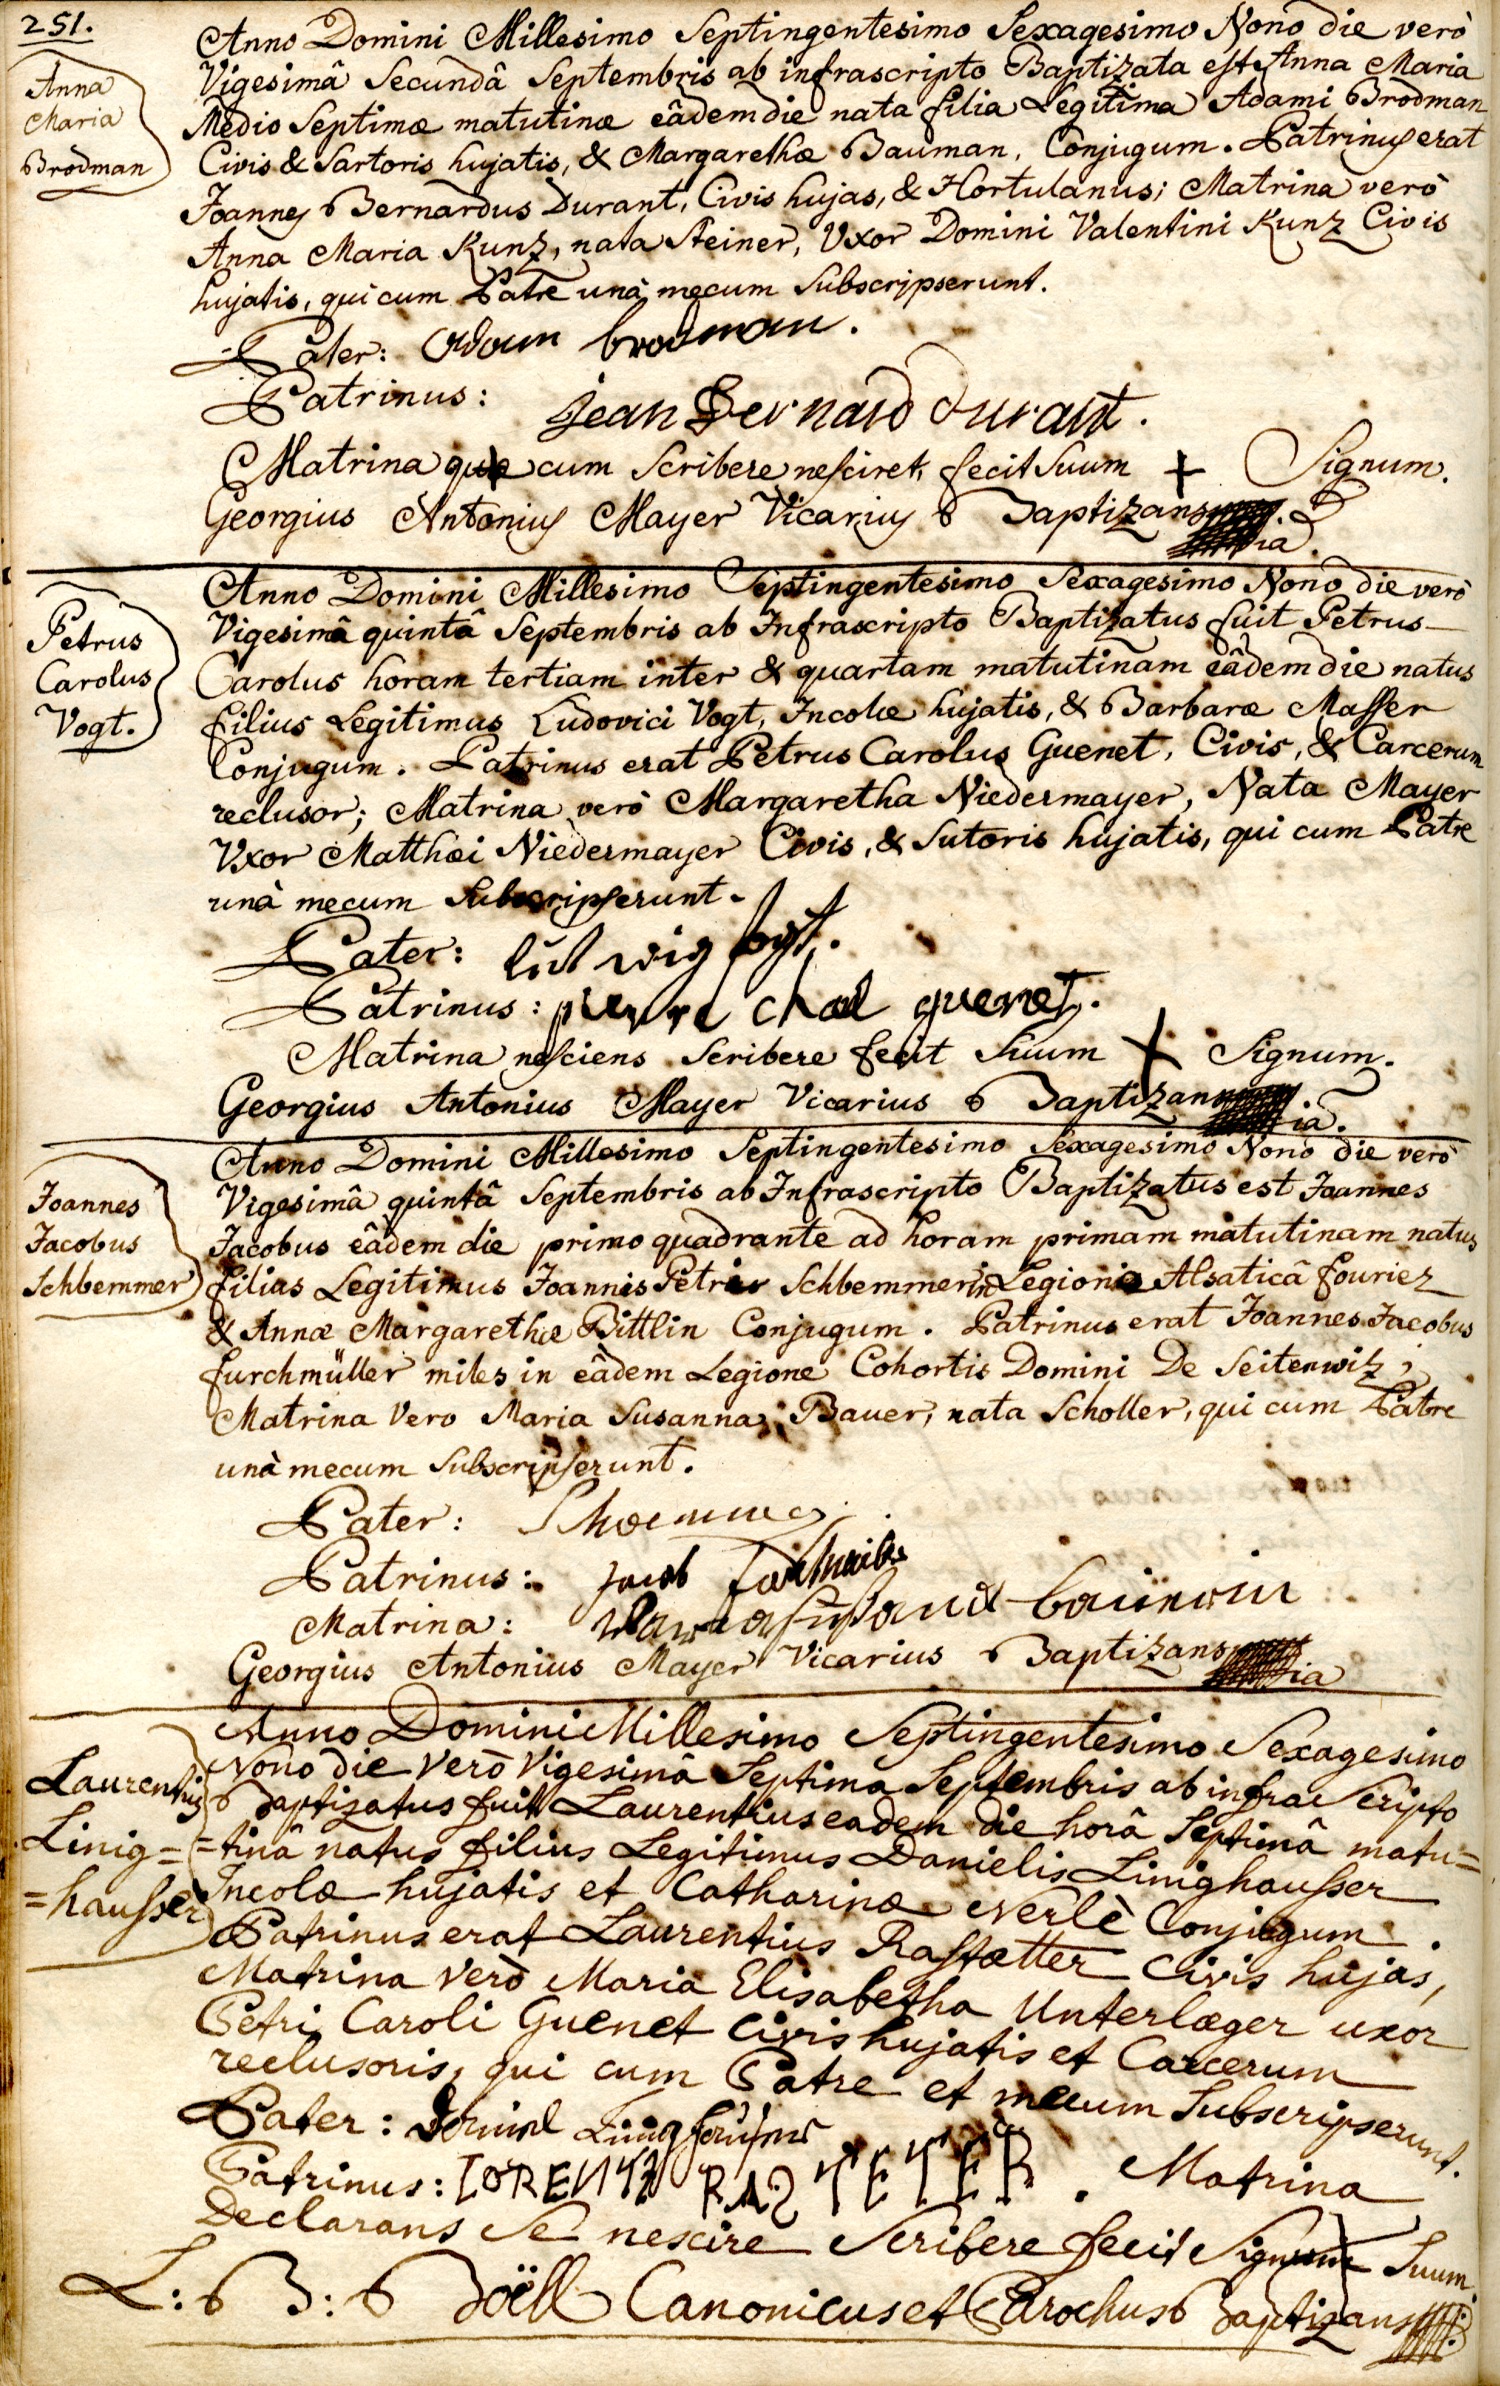 251.
Anna
Maria
Brodman
Anno Domini Millesimo Septingentesimo Sexagesimo Nono die verò
Vigesimâ Secundâ Septembris ab infrascripto Baptizata est Anna Maria
Medio Septimæ matutinæ eâdem die nata filia Legitima Adami Brodman
Civis & Sartoris hujatis, & Margarethæ Bauman, Conjugum. Patrinus erat
Joannes Bernardus Durant, Civis hujas, & Hortulanus; Matrina verò
Anna Maria Kunz, nata Steiner, Vxor Domini Valentini Kunz Civis
hujatis, qui cum Patre unà mecum Subscripserunt.
Pater: Adam brodman.
Patrinus: jean Bernard durant.
Matrina quæ cum Scribere nesciret, fecit Suum + Signum.
Georgius Antonius Mayer Vicarius Baptizans
Petrus
Carolus
Vogt.
Anno Domini Millesimo Septingentesimo Sexagesimo Nono die verò
Vigesimâ quintâ Septembris ab Infrascripto Baptizatus fuit Petrus
Carolus horam tertiam inter & quartam matutinam eâdem die natus
filius Legitimus Ludovici Vogt, Incolæ hujatis, & Barbaræ Masser
Conjugum. Patrinus erat Petrus Carolus Guenet, Civis, & Carcerum
reclusor; Matrina verò Margaretha Niedermayer, Nata Mayer
Vxor Matthæi Niedermayer Civis, & Sutoris hujatis, qui cum Patre
unà mecum Subscripserunt.
Pater: Ludwig Vogt.
Patrinus: pierre chal guenet.
Matrina nesciens Scribere fecit Suum + Signum.
Georgius Antonius Mayer Vicarius Baptizans
Joannes
Jacobus
Schbemmer
Anno Domini Millesimo Septingentesimo Sexagesimo Nono die verò
Vigesimâ quintâ Septembris ab Infrascripto Baptizatus est Joannes
Jacobus eâdem die primo quadrante ad horam primam matutinam natus
filius Legitimus Joannis Petri Schbemmer in Legione Alsaticâ fourier
& Annæ Margarethæ Bittlin Conjugum. Patrinus erat Joannes Jacobus
furchmüller miles in eâdem Legione Cohortis Domini De Seitenwitz;
Matrina Vero Maria Susanna Bauer, nata Scholler, qui cum Patre
unà mecum Subscripserunt.
Pater:
Patrinus: Jacob
Matrina: Maria susana baurin
Georgius Antonius Mayer Vicarius Baptizans
Laurentius
Linig=
=hausser
Anno Domini Millesimo Septingentesimo Sexagesimo
Nono die Verò Vigesimâ Septima Septembris ab infra Scripto
Baptizatus fuit Laurentius eadem die horâ Septimâ matu=
=tinâ natus filius Legitimus Danielis Linighausser
Incolæ hujatis et Catharinæ Everlè Conjugum.
Patrinus erat Laurentius Rastætter Civis hujas,
Matrina verò Maria Elisabetha Unterlæger uxor
Petri Caroli Guenet Civis hujatis et Carcerum
reclusoris, qui cum Patre et mecum Subscripserunt.
Pater: Daniel Linighausser
Patrinus: LORENTZ RASTETER. Matrina
Declarans Se nescire Scribere fecit Signum Suum.
L: B: Boëll Canonicus et Parochus Baptizans